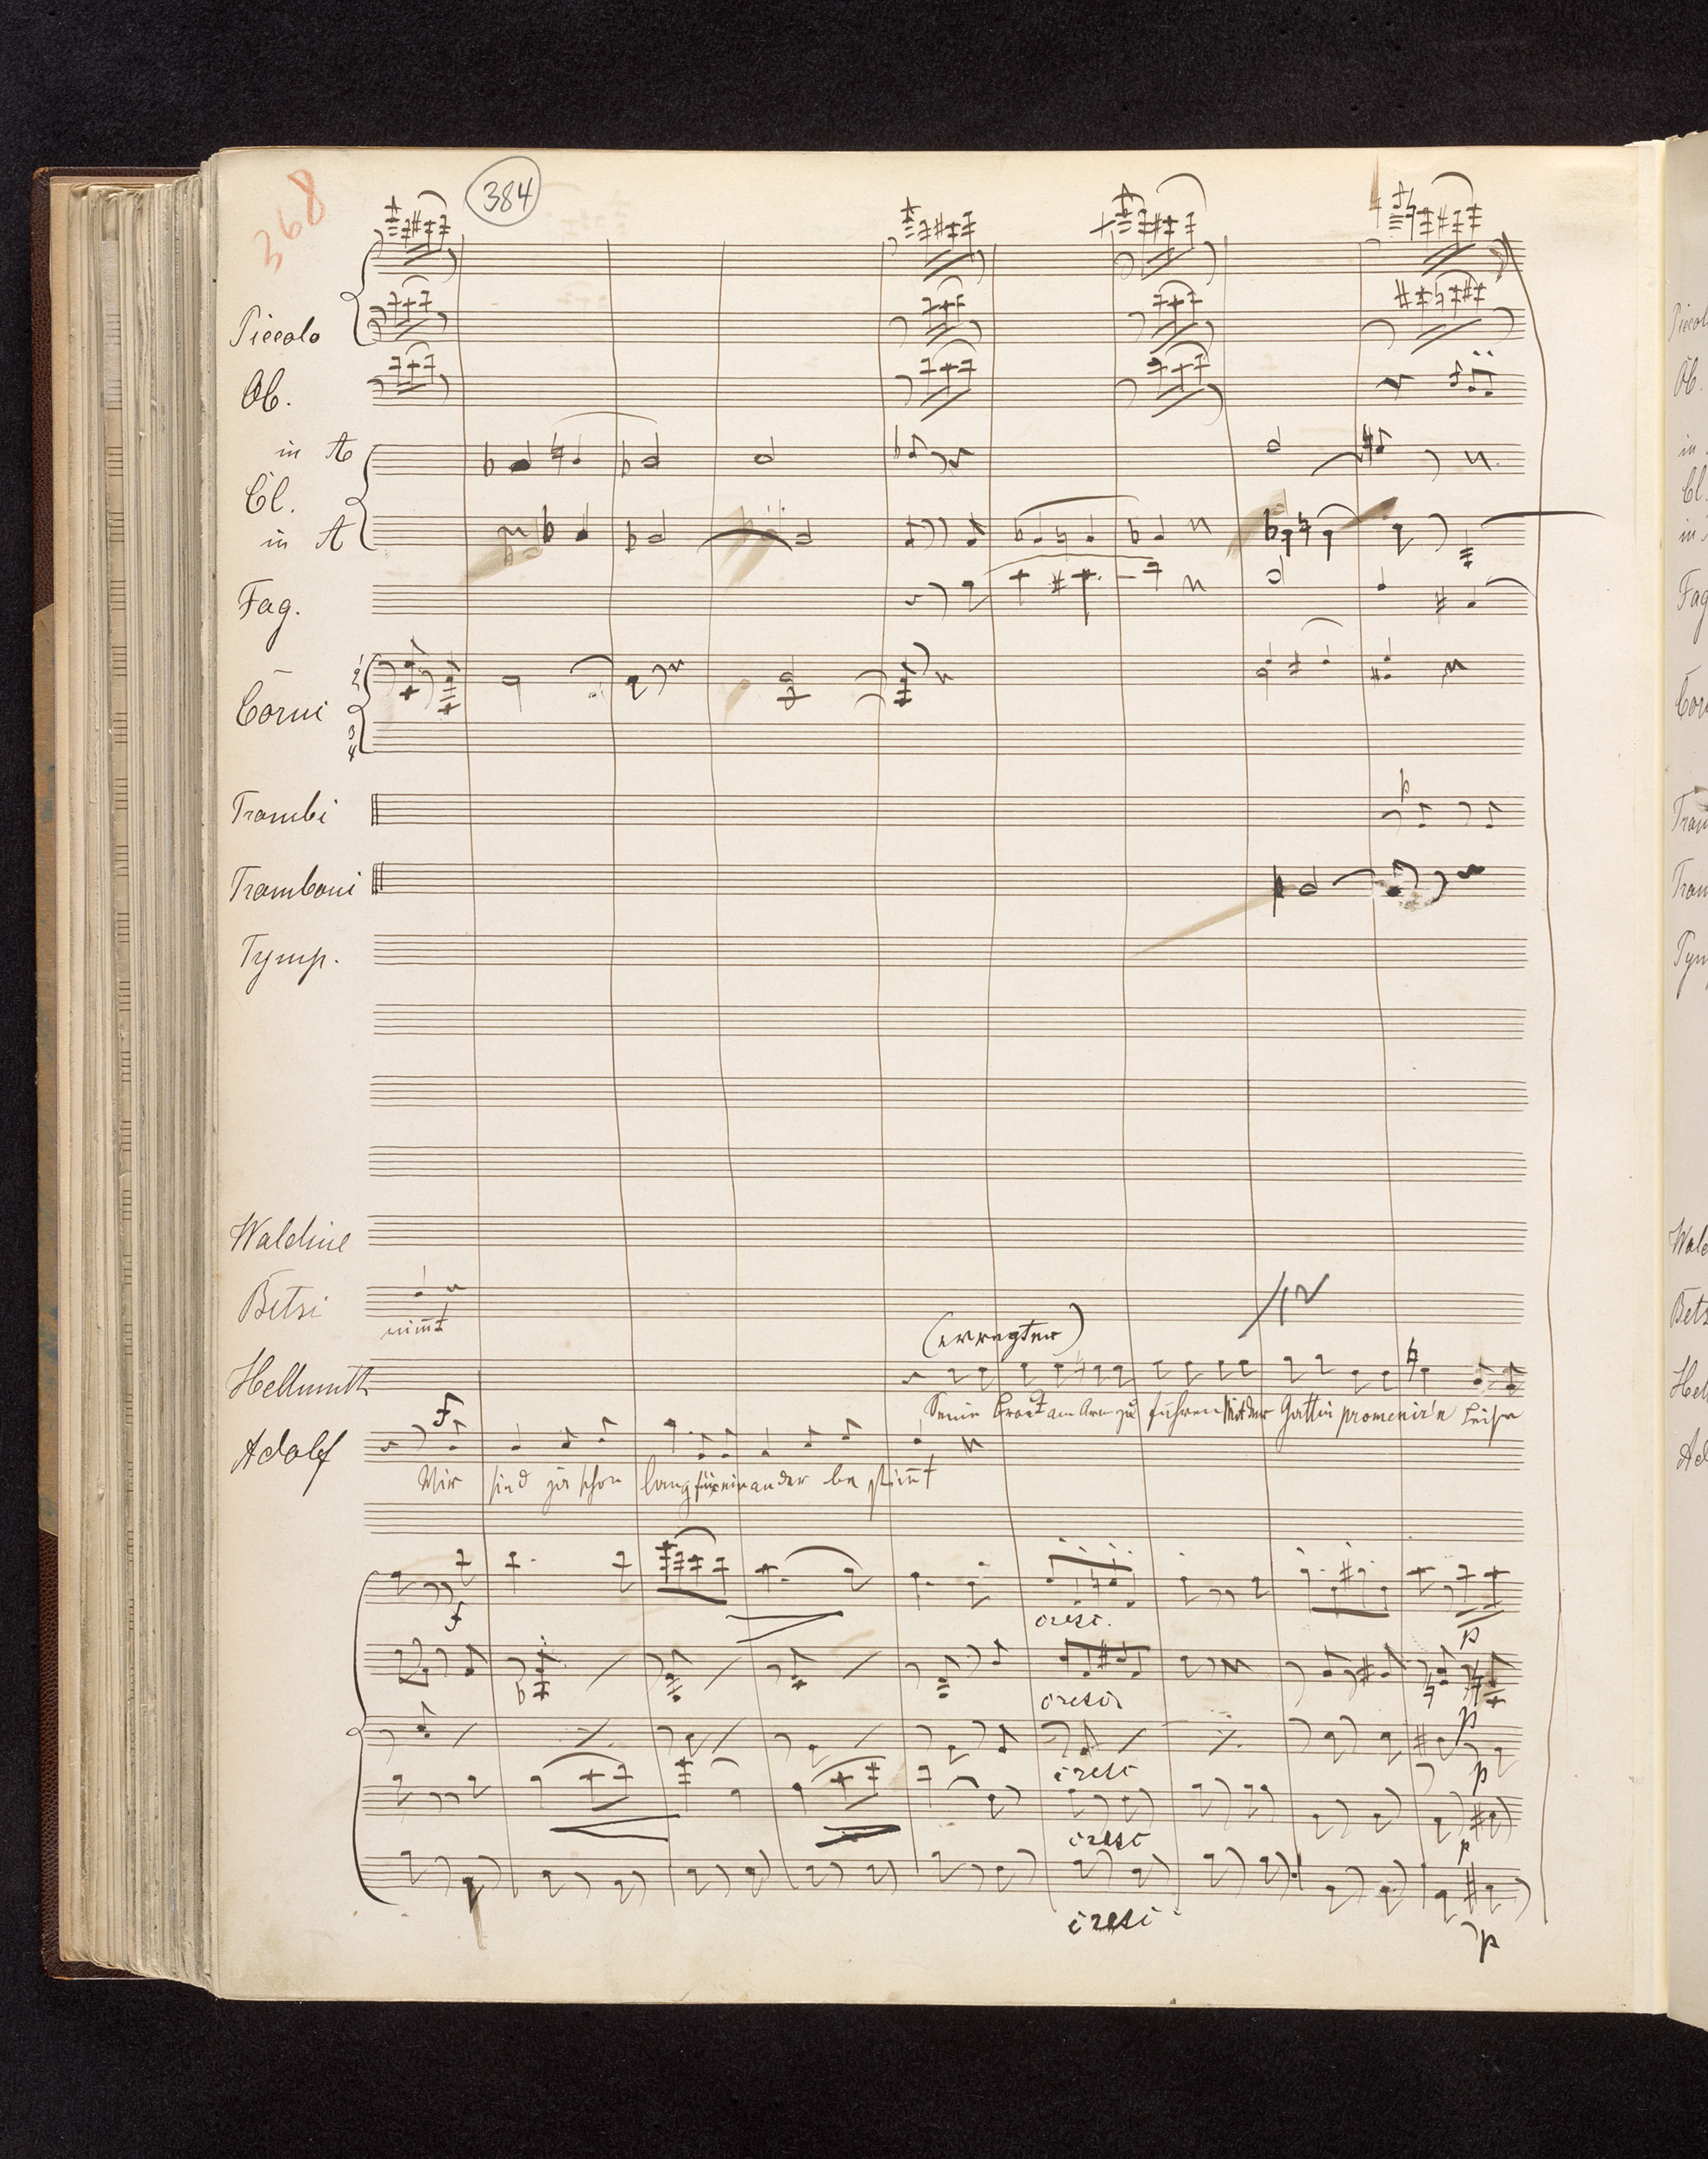 368
384
Piccolo
Ob.
in A
Cl.
in A
Fag.
1
2
Corni
3
4
Trombi
p
Tromboni
Tymp.
Waldine
Betsi
nim̄t
(erregter)
Hellmuth
Seine Braut am Arm zu führen Mit der Gattin promenir'n Leise
f
Adolf
Wir sind ja schon lang füreinander be stim̄t
f
cresc.
p
cresc
p
cresc
p
cresc
p
cresc
p